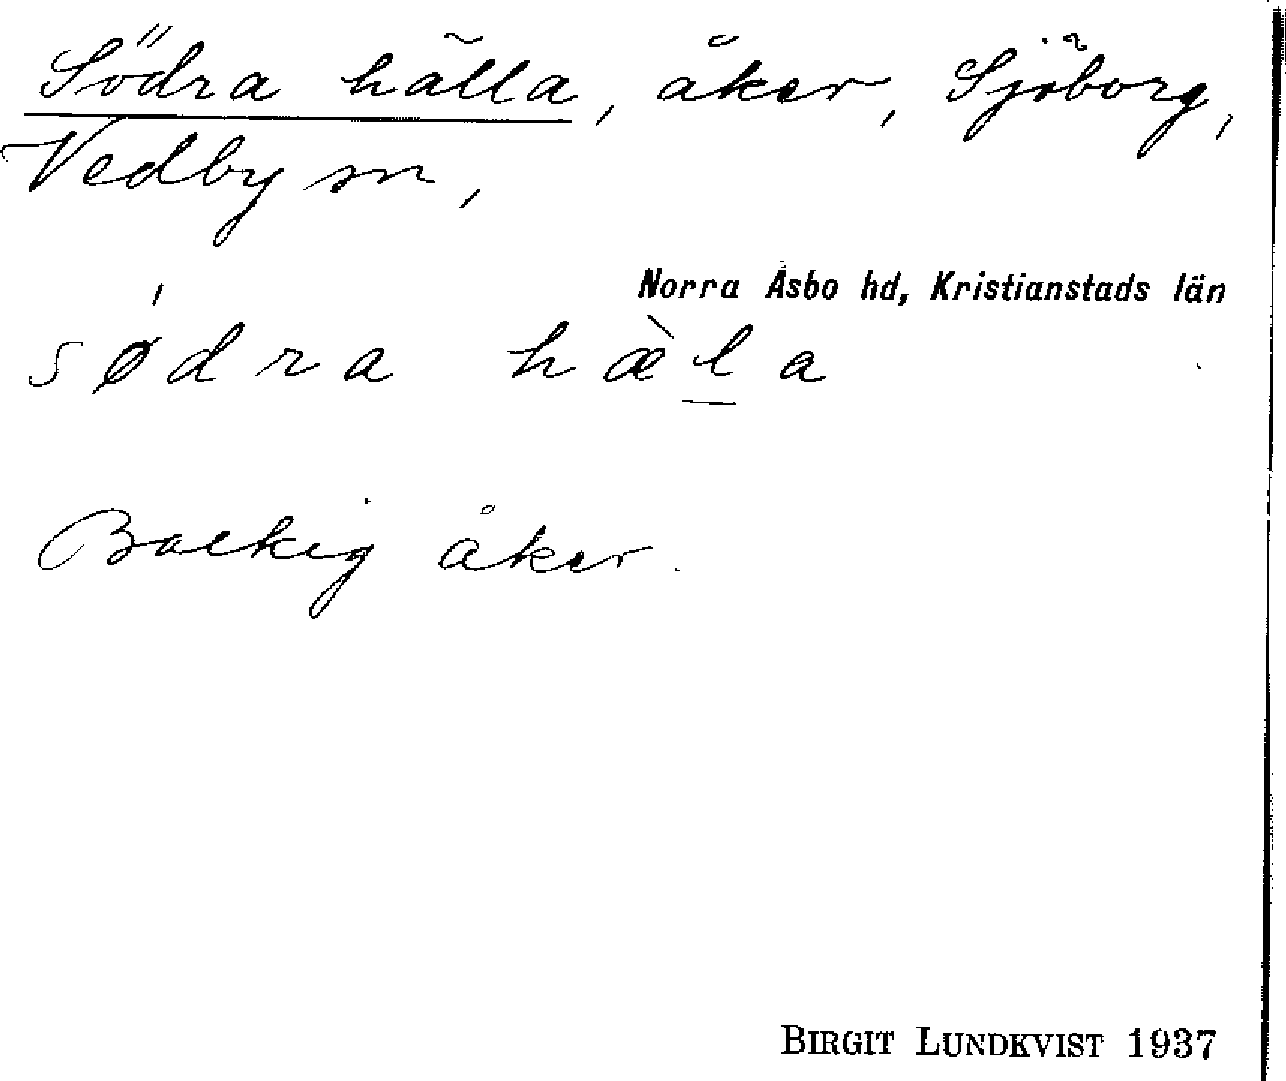 Södra hälla, åker, Sjöborg,
Vedby sn,
Norra Åsbo hd, Kristianstads län
sǿdra hæ̀l̲a
Backig åker.
BIRGIT LUNDKVIST 1937